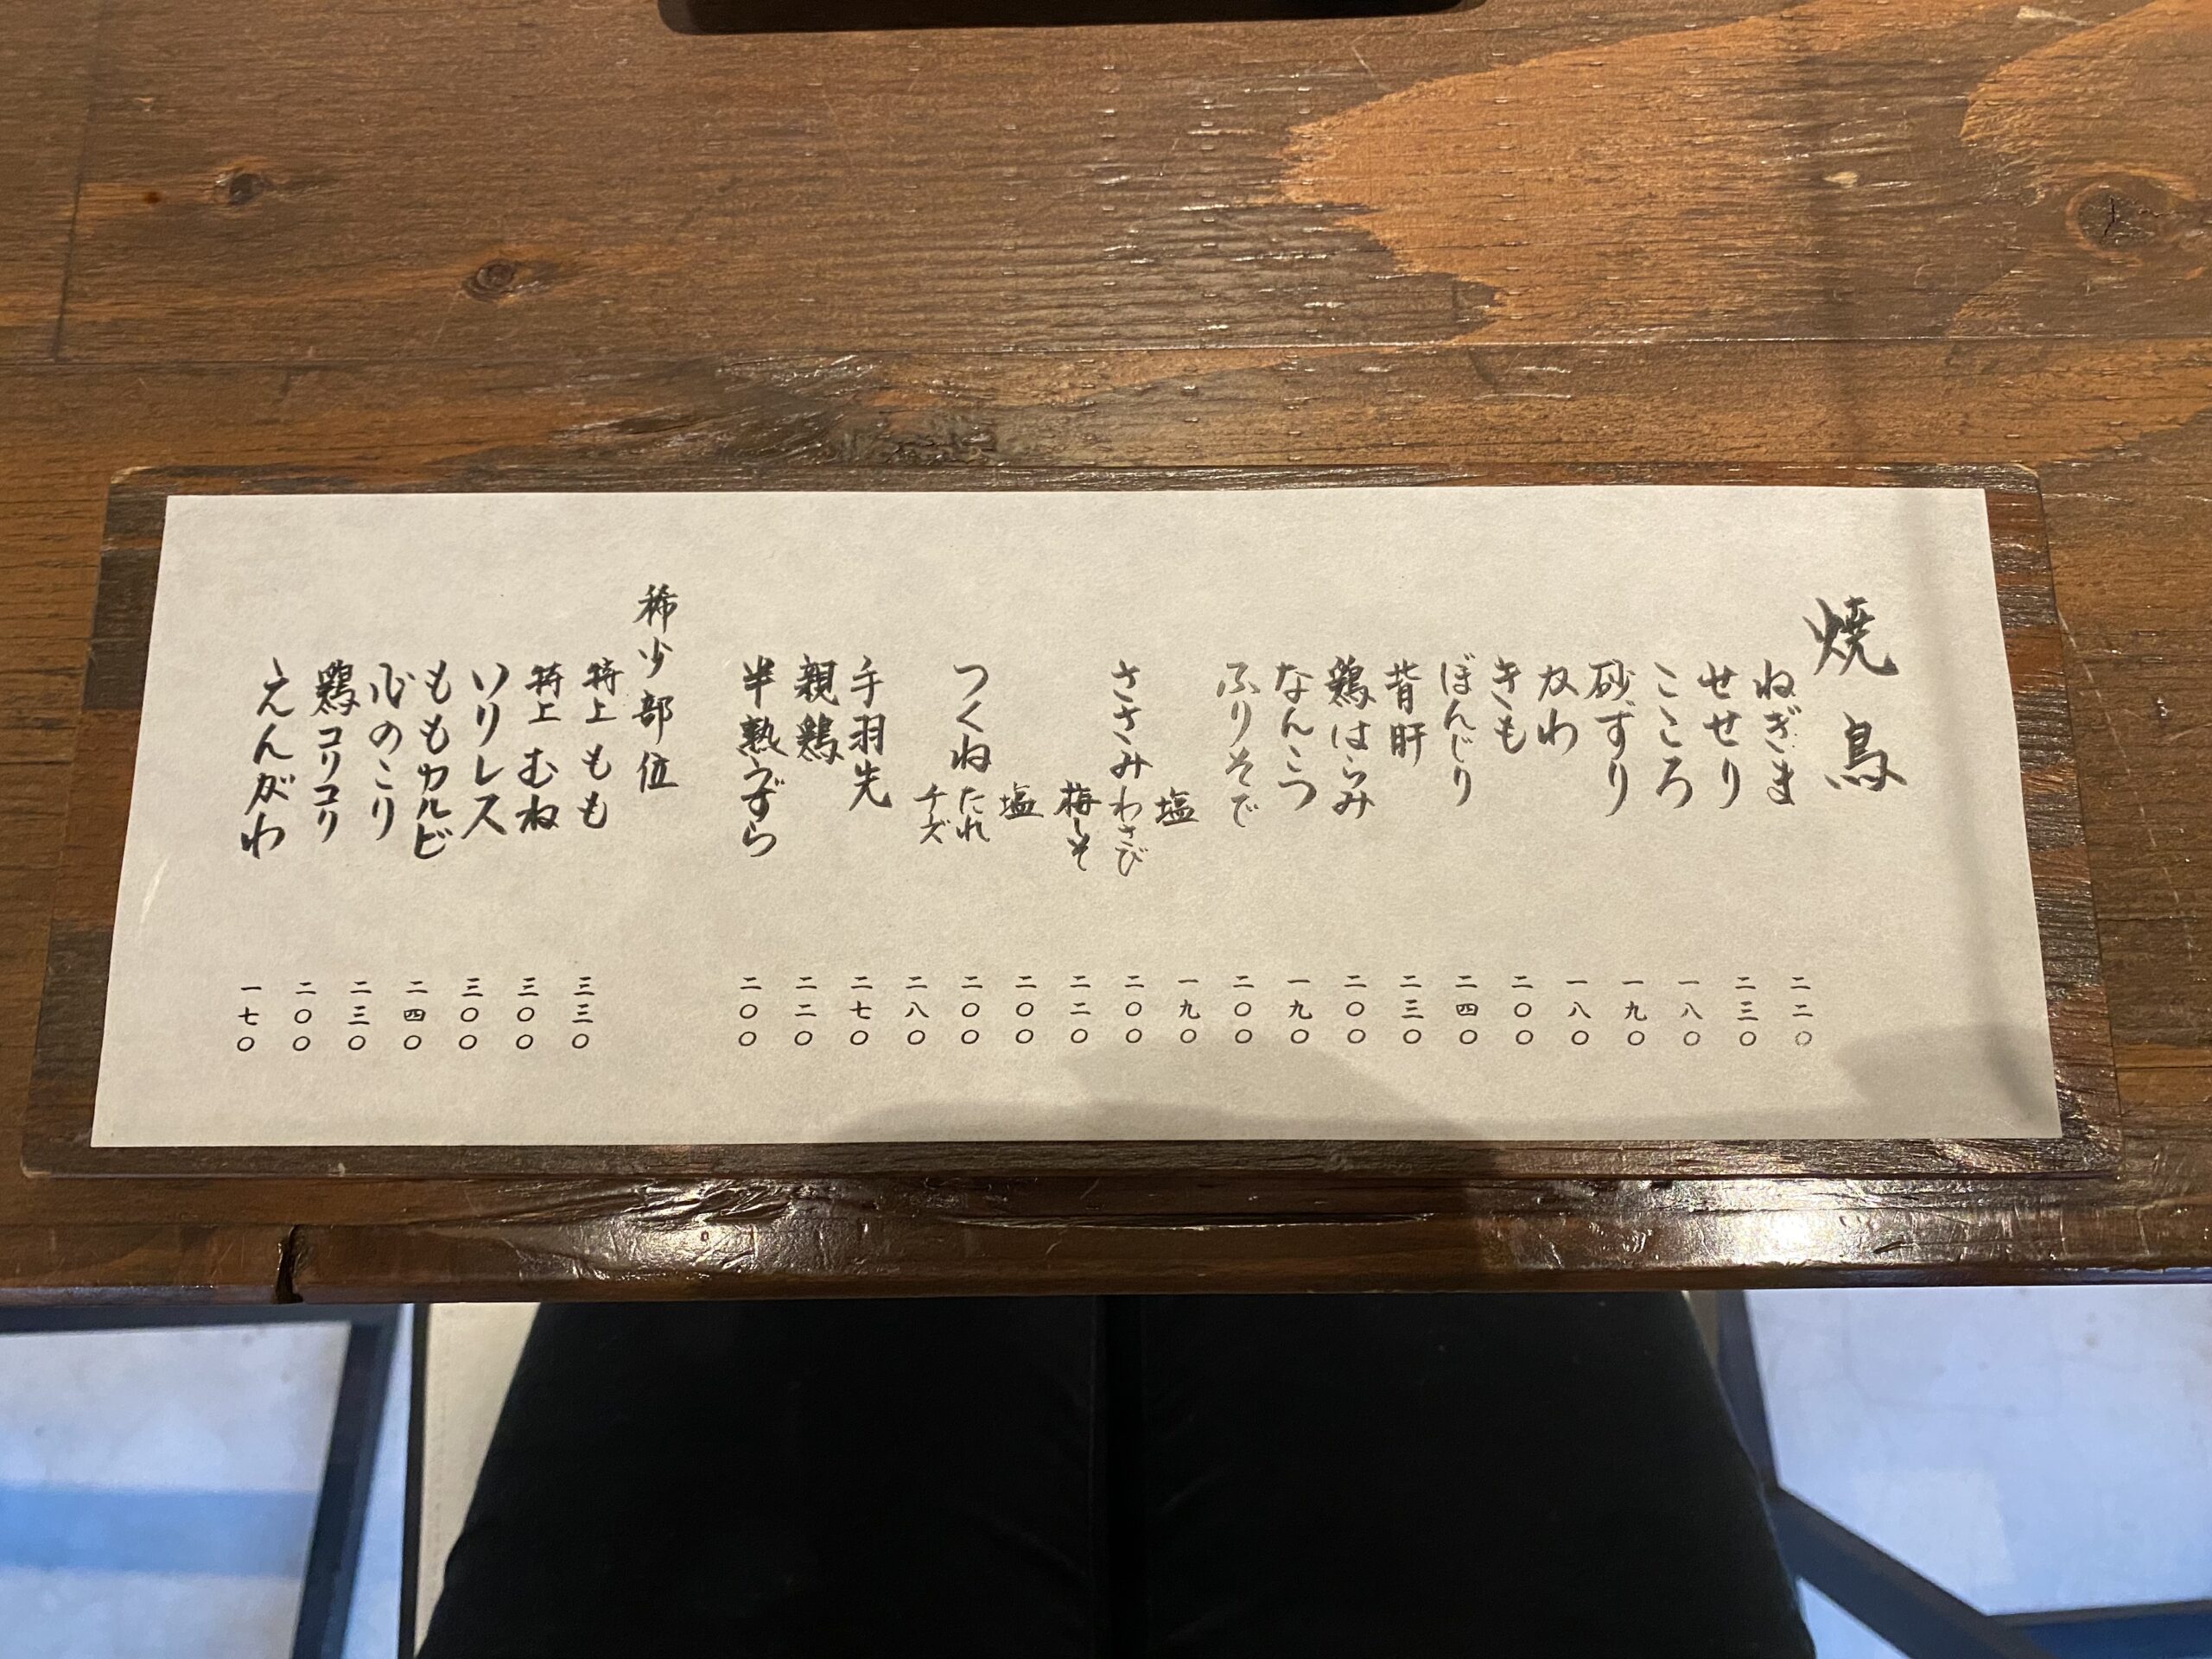 焼鳥
ねぎま 二二〇
せせり 二三〇
こころ 一八〇
砂ずり 一九〇
かわ 一八〇
きも 二〇〇
ぼんじり 二四〇
背肝 二三〇
鶏はらみ 二〇〇
なんこつ 一九〇
ふりそで 二〇〇
塩 一九〇
ささみ わさび 二〇〇
梅しそ 二二〇
塩 二〇〇
つくね たれ 二〇〇
チーズ 二八〇
手羽先 二七〇
親鶏 二二〇
半熟うずら 二〇〇
稀少部位
特上 もも 三三〇
特上 むね 三〇〇
ソリレス 三〇〇
ももカルビ 二四〇
心のこり 二三〇
鶏コリコリ 二〇〇
えんがわ 一七〇